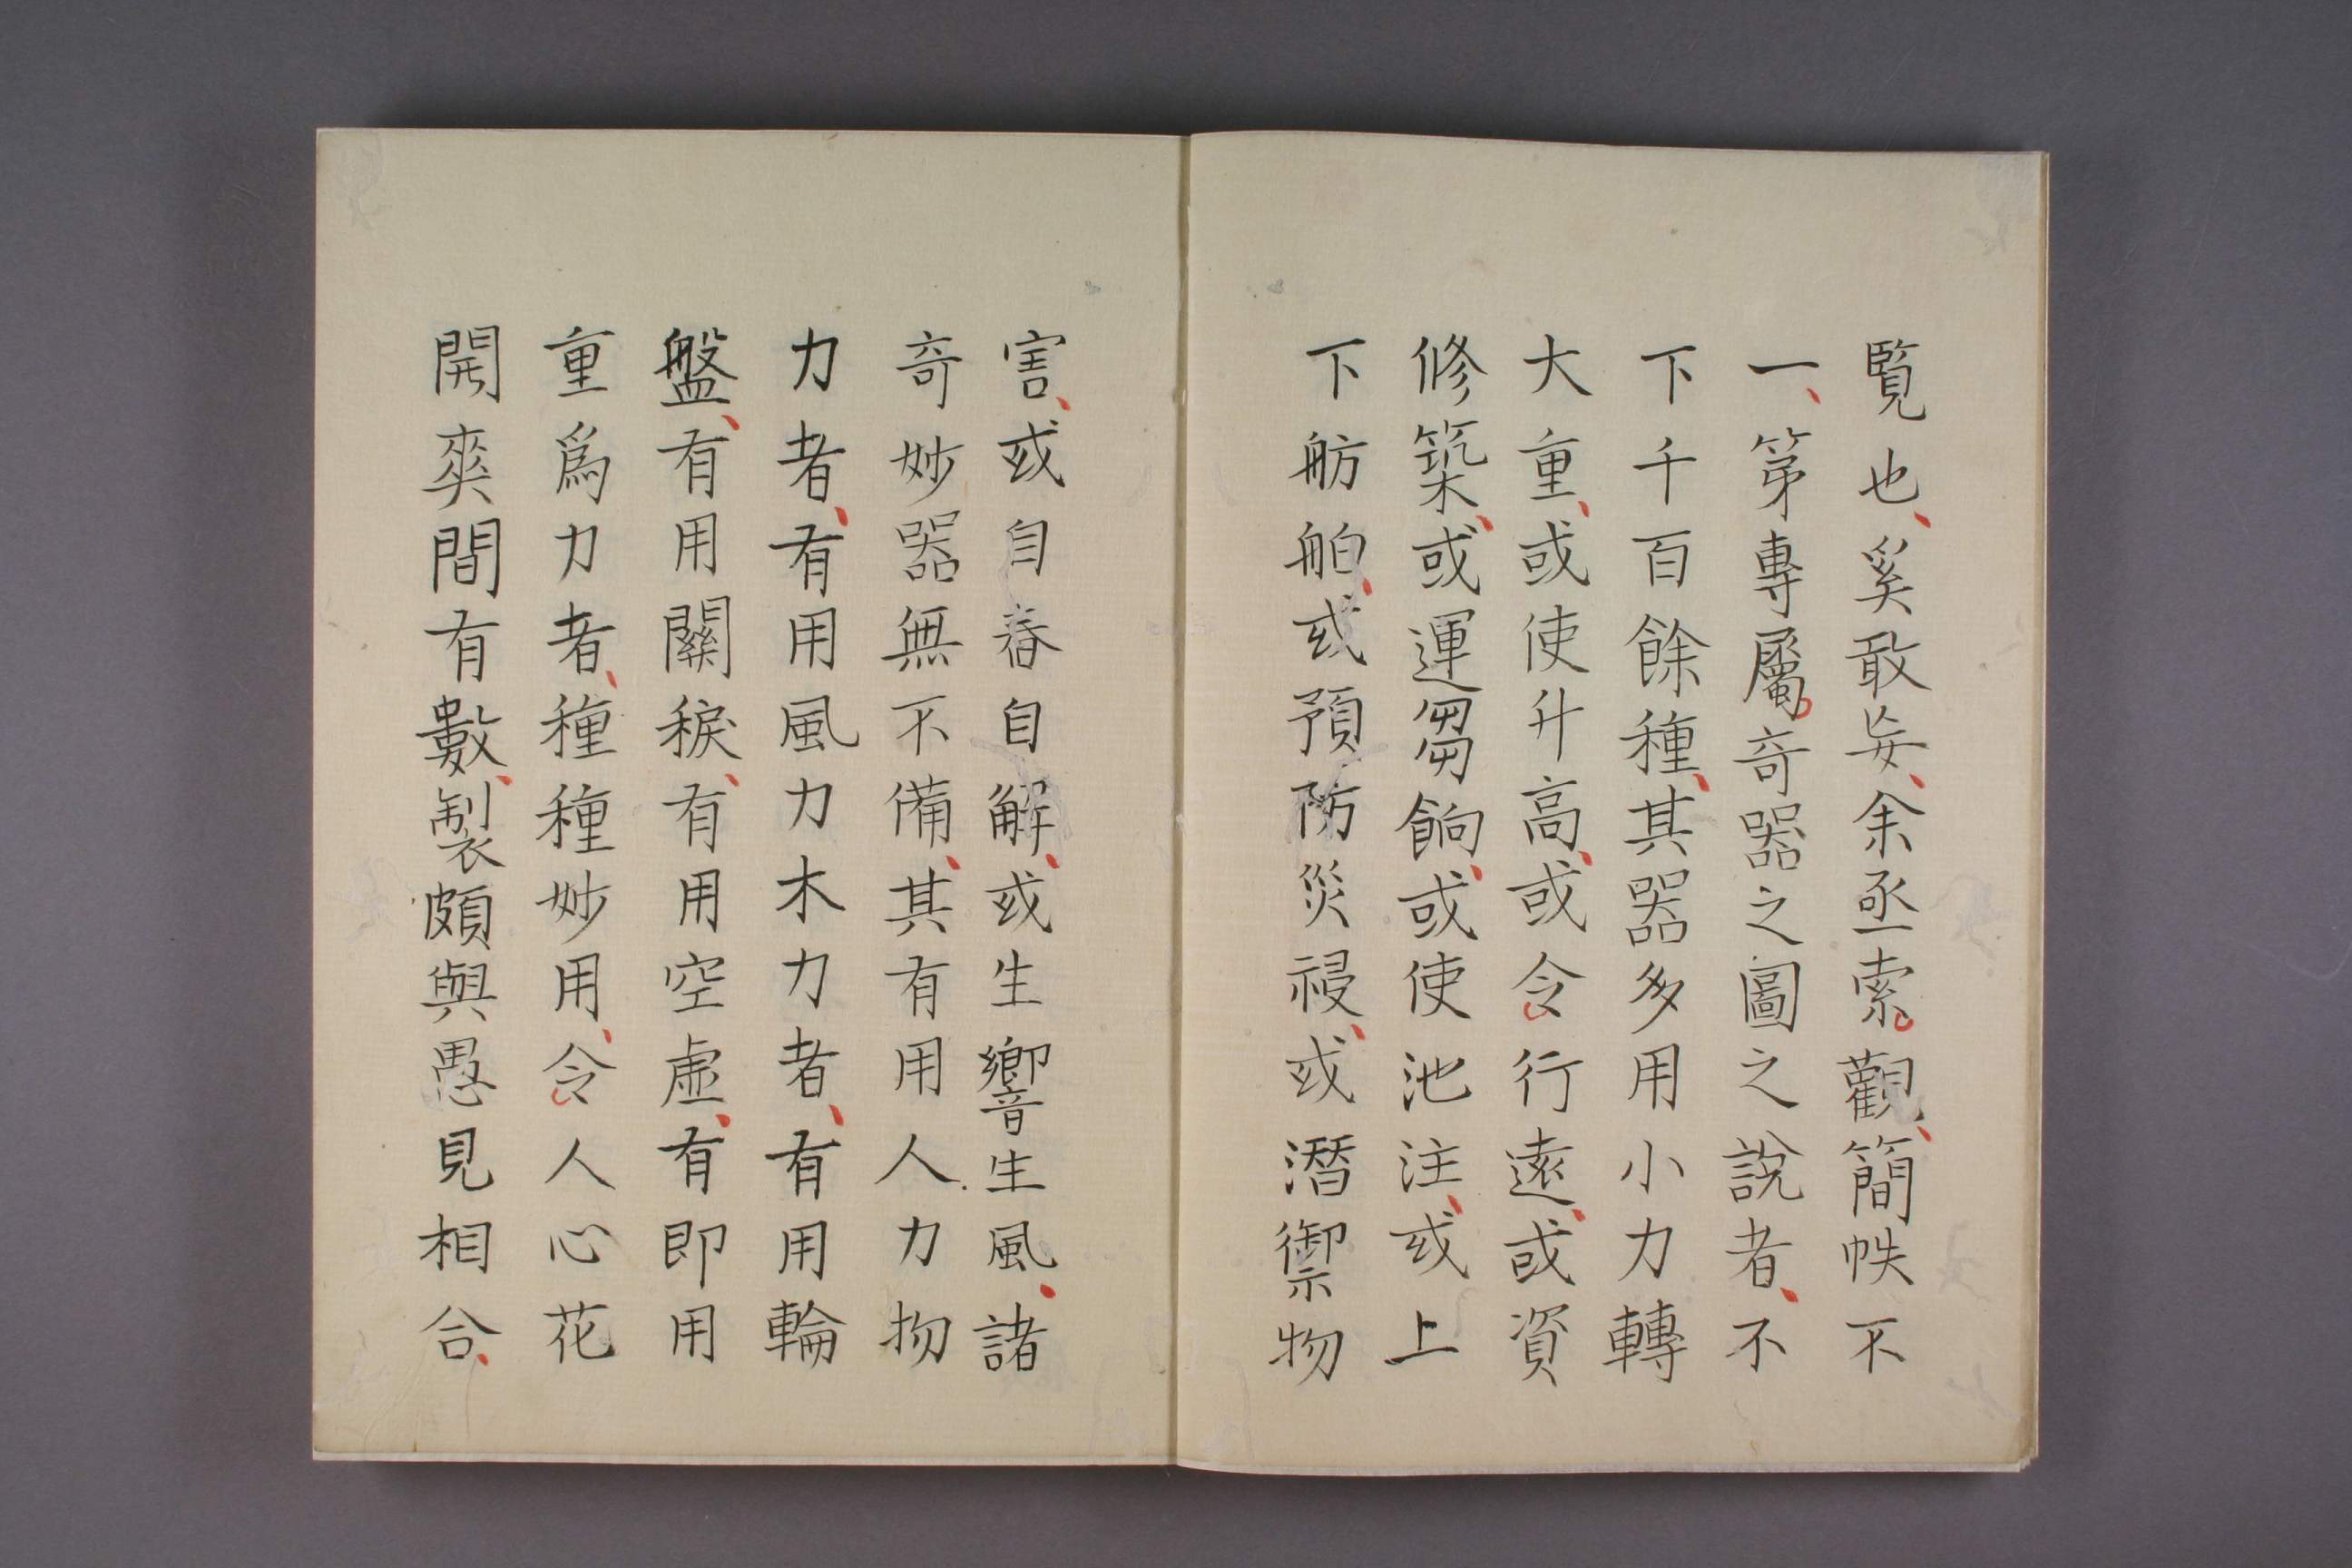 覧也、奚敢妄、余亟索觀、簡帙不
一、第專屬奇噐之圖之說者、不
下千百餘種、其噐多用小力轉
大重、或使升高、或令行遠、或資
修築、或運芻餉、或使池注、或上
下舫舶、或預防災祲、或潛禦物
害、或自舂自解、或生響生風、諸
奇妙噐無不備、其有用人力物
力者、有用風力木力者、有用輪
盤、有用關捩、有用空虛、有即用
重爲力者、種種妙用、令人心花
開爽、間有數、製頗與愚見相合、